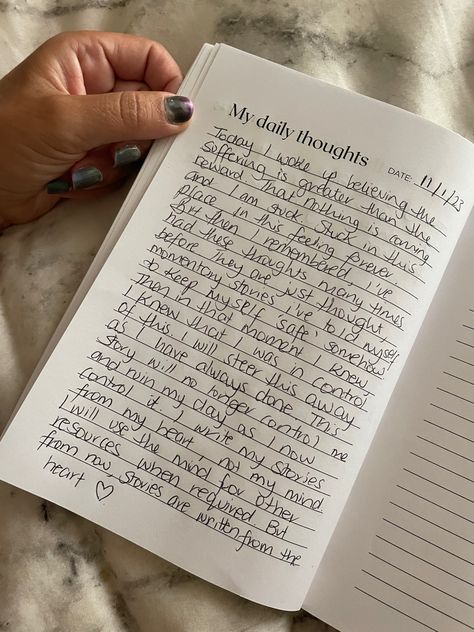 My daily thoughts
DATE: 17/1/23
Today I woke up believing the
suffering is greater than the
reward. That nothing is coming
and I am stuck. Stuck in this
place in this feeling forever
But then I remembered, I've
had these thoughts many times
before. They are just thought,
momentary stories i've to told myself
to keep myself 'safe' somehow
Then in that moment I knew,
I knew that I was in control
of this. I will steer this away
as I have always done. This
story will no longer control me
and ruin my day as I now
control it. I write my stories
from my heart, not my mind.
I will use the mind for other
resources when required. But
from now stories are written from the
heart ♡